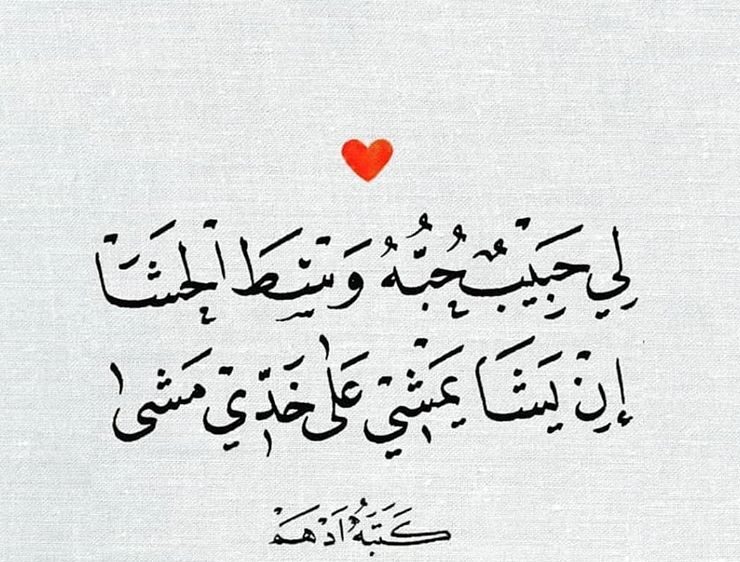 لِي حَبِيْبٌ حُبُّهُ وَسْطَ الْحَشَا
إِنْ يَشَا يَمْشِيْ عَلٰى خَدِّيْ مَشٰى
كَتَبَهُ اَدْهَمْ